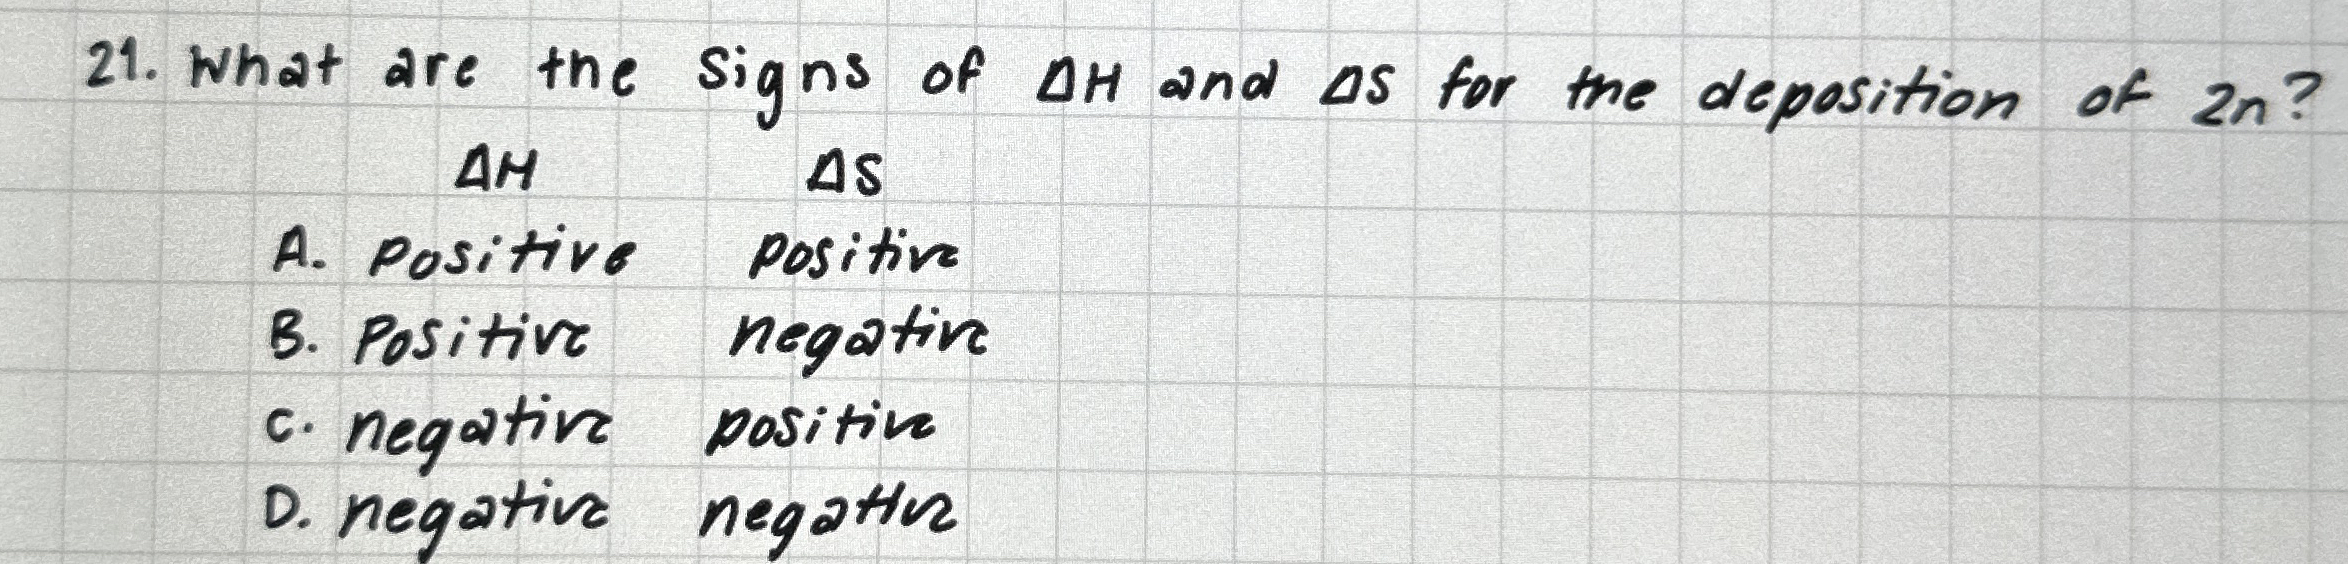 21. What are the signs of ΔH and ΔS for the deposition of Zn?
ΔH ΔS
A. positive positive
B. Positive negative
C. negative positive
D. negative negative